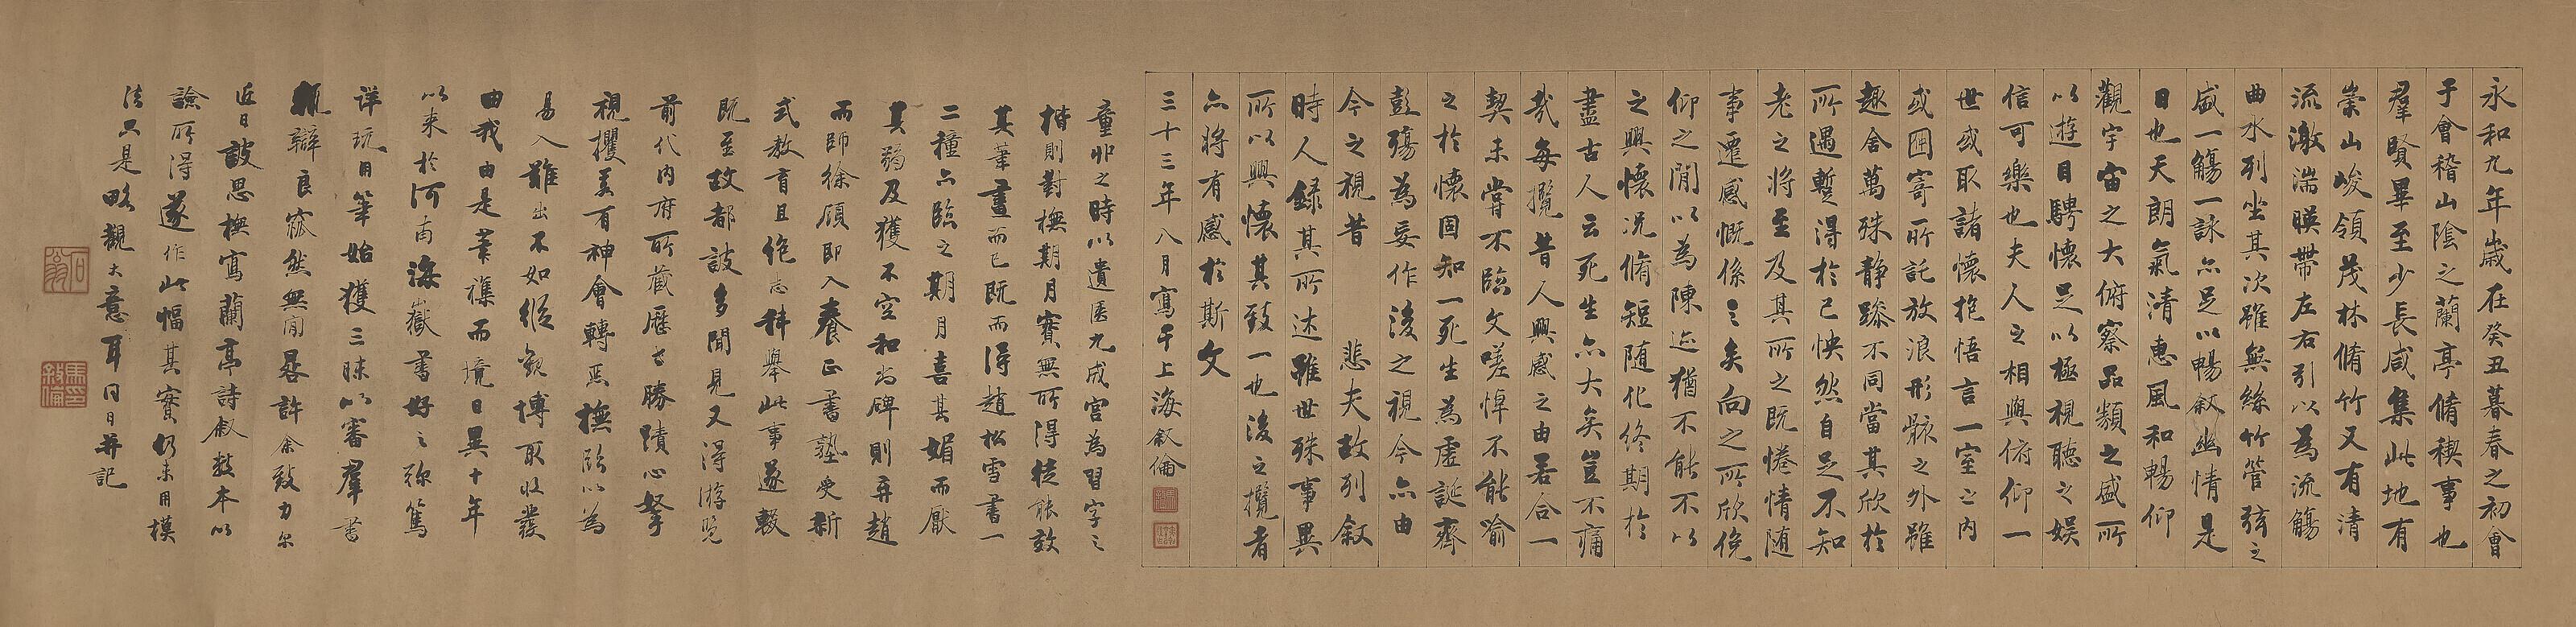 永和九年歲在癸丑暮春之初會
于會稽山陰之蘭亭脩稧事也
羣賢畢至少長咸集此地有
崇山峻領茂林脩竹又有清
流激湍暎帶左右引以為流觴
曲水列坐其次雖無絲竹管弦之
盛一觴一詠亦足以暢叙幽情是
日也天朗氣清惠風和暢仰
觀宇宙之大俯察品類之盛所
以遊目騁懷足以極視聽之娛
信可樂也夫人之相與俯仰一
世或取諸懷抱悟言一室之內
或因寄所託放浪形骸之外雖
趣舍萬殊静躁不同當其欣於
所遇暫得於己怏然自足不知
老之將至及其所之既惓情隨
事遷感慨係之矣向之所欣俛
仰之閒以為陳迹猶不能不以
之興懷況脩短隨化終期於
盡古人云死生亦大矣豈不痛
哉每攬昔人興感之由若合一
契未嘗不臨文嗟悼不能喻
之於懷固知一死生為虛誕齊
彭殤為妄作後之視今亦由
今之視昔 悲夫故列叙
時人錄其所述雖世殊事異
所以興懷其致一也後之攬者
亦將有感於斯文
三十三年八月寫于上海叙倫
童丱之時以遺匿九成宮為習字之
楷則對橅期月實無所得徒能效
其筆畫而已既而得趙松雪書一
二種亦臨之期月喜其媚而厭
其弱及獲不空和尚碑則弃趙
而師徐頎即入養正書塾受新
式教育且絶志科舉此事遂輟
既至故都詖多聞見又得游覽
前代内府所藏歷古勝蹟心擎
視攫若有神會轉惡橅臨以為
易入難出不如縱觀博取收發
由我由是筆襍而境日異十年
以来於河南海嶽書好之弥篤
詳玩用筆始獲三昧以審羣書
甄辯良窳然無閒晷許余致力尔
近日詖思橅寫蘭亭詩叙數本以
譣所得遂作此幅其實仍未用模
法只是略觀大意耳同日并記
石翁
馬叙倫